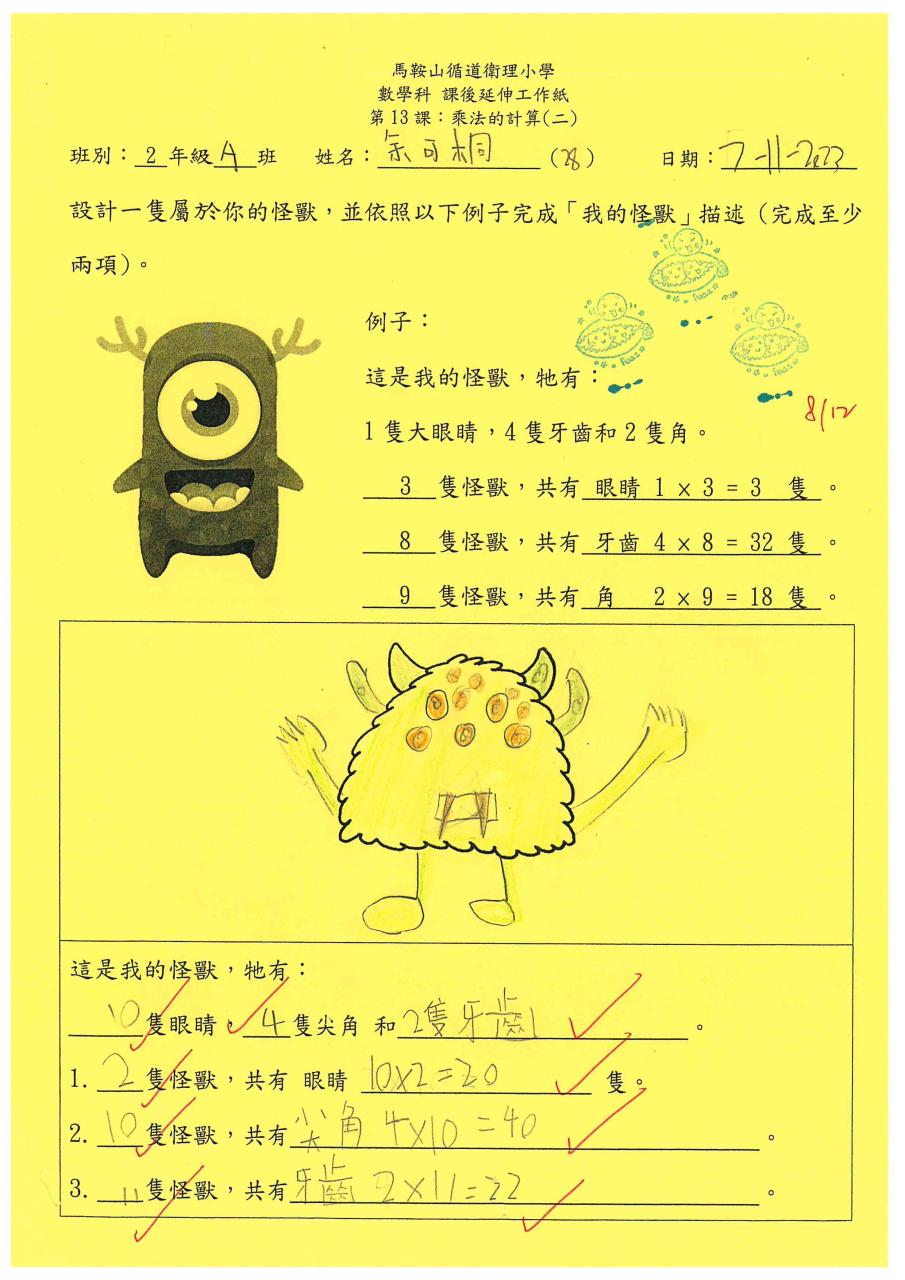 馬鞍山循道衛理小學
數學科 課後延伸工作紙
第13課：乘法的計算(二)
班別：2年級A班 姓名：余可桐(28) 日期：7-11-2023
設計一隻屬於你的怪獸，並依照以下例子完成「我的怪獸」描述（完成至少
兩項）。
例子：
這是我的怪獸，牠有：
8/12
1隻大眼睛，4隻牙齒和2隻角。
3 隻怪獸，共有 眼睛 1 × 3 = 3 隻。
8 隻怪獸，共有 牙齒 4 × 8 = 32 隻。
9 隻怪獸，共有 角 2 × 9 = 18 隻。
這是我的怪獸，牠有：
10隻眼睛，4隻尖角 和2隻牙齒。
1. 2隻怪獸，共有 眼睛 10×2=20 隻。
2. 10隻怪獸，共有尖角 4×10=40。
3. 11隻怪獸，共有牙齒 2×11=22。